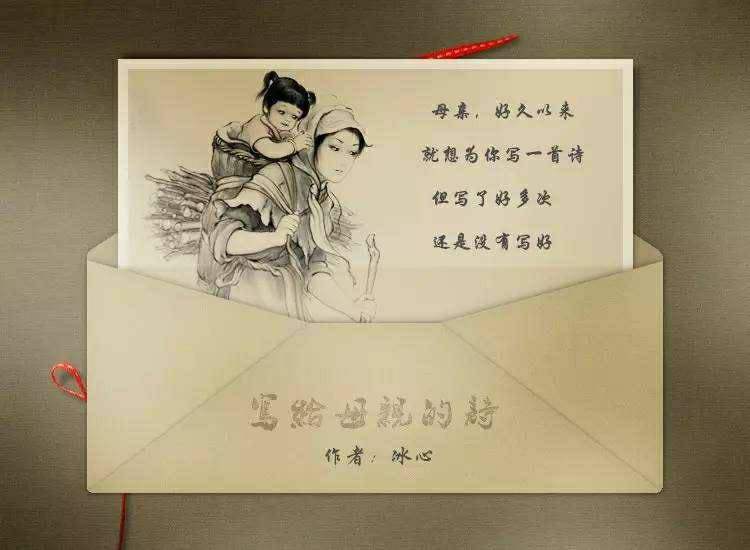 母亲，好久以来
就想为你写一首诗
但写了好多次
还是没有写好
写给母親的詩
作者：冰心